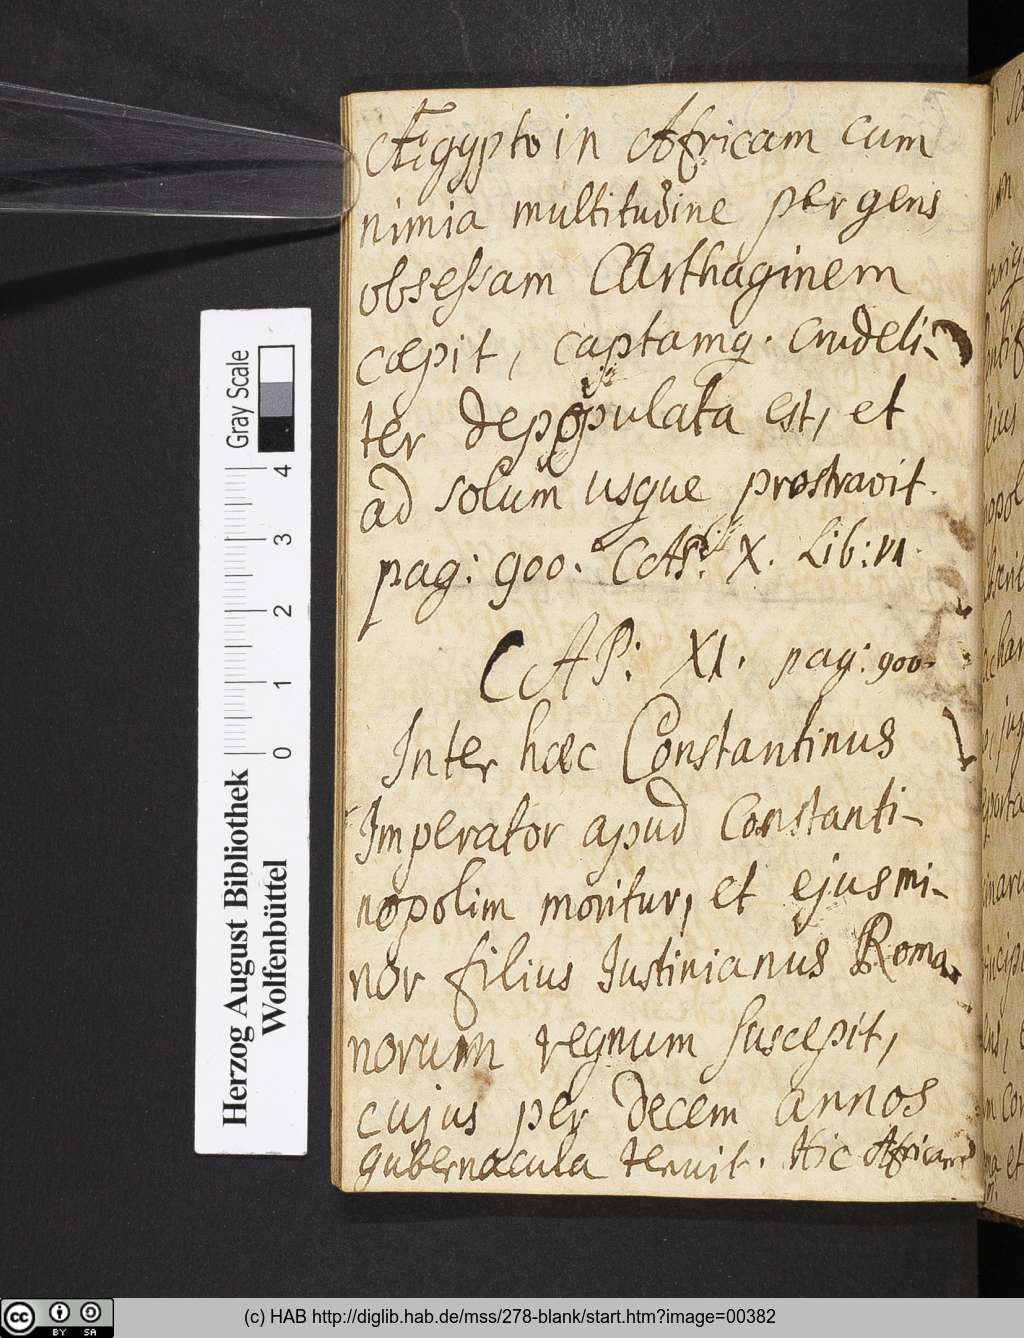 Ægypto in Africam cum
nimia multitudine pergens
obsessam CArthaginem
cœpit, captamq. crudeli-
ter depopulata est, et
ad solum usque prostravit.
pag: 900. CAP. X. Lib: VI.
CAP: XI. pag: 900.
Inter hæc Constantinus
Imperator apud Constanti-
nopolim moritur, et ejus mi-
nor filius Iustinianus Roma-
norum regnum suscepit,
cujus per decem annos
gubernacula tenuit. Hic African
Gray Scale
4
3
2
1
0
Herzog August Bibliothek
Wolfenbüttel
cc BY SA
(c) HAB http://diglib.hab.de/mss/278-blank/start.htm?image=00382